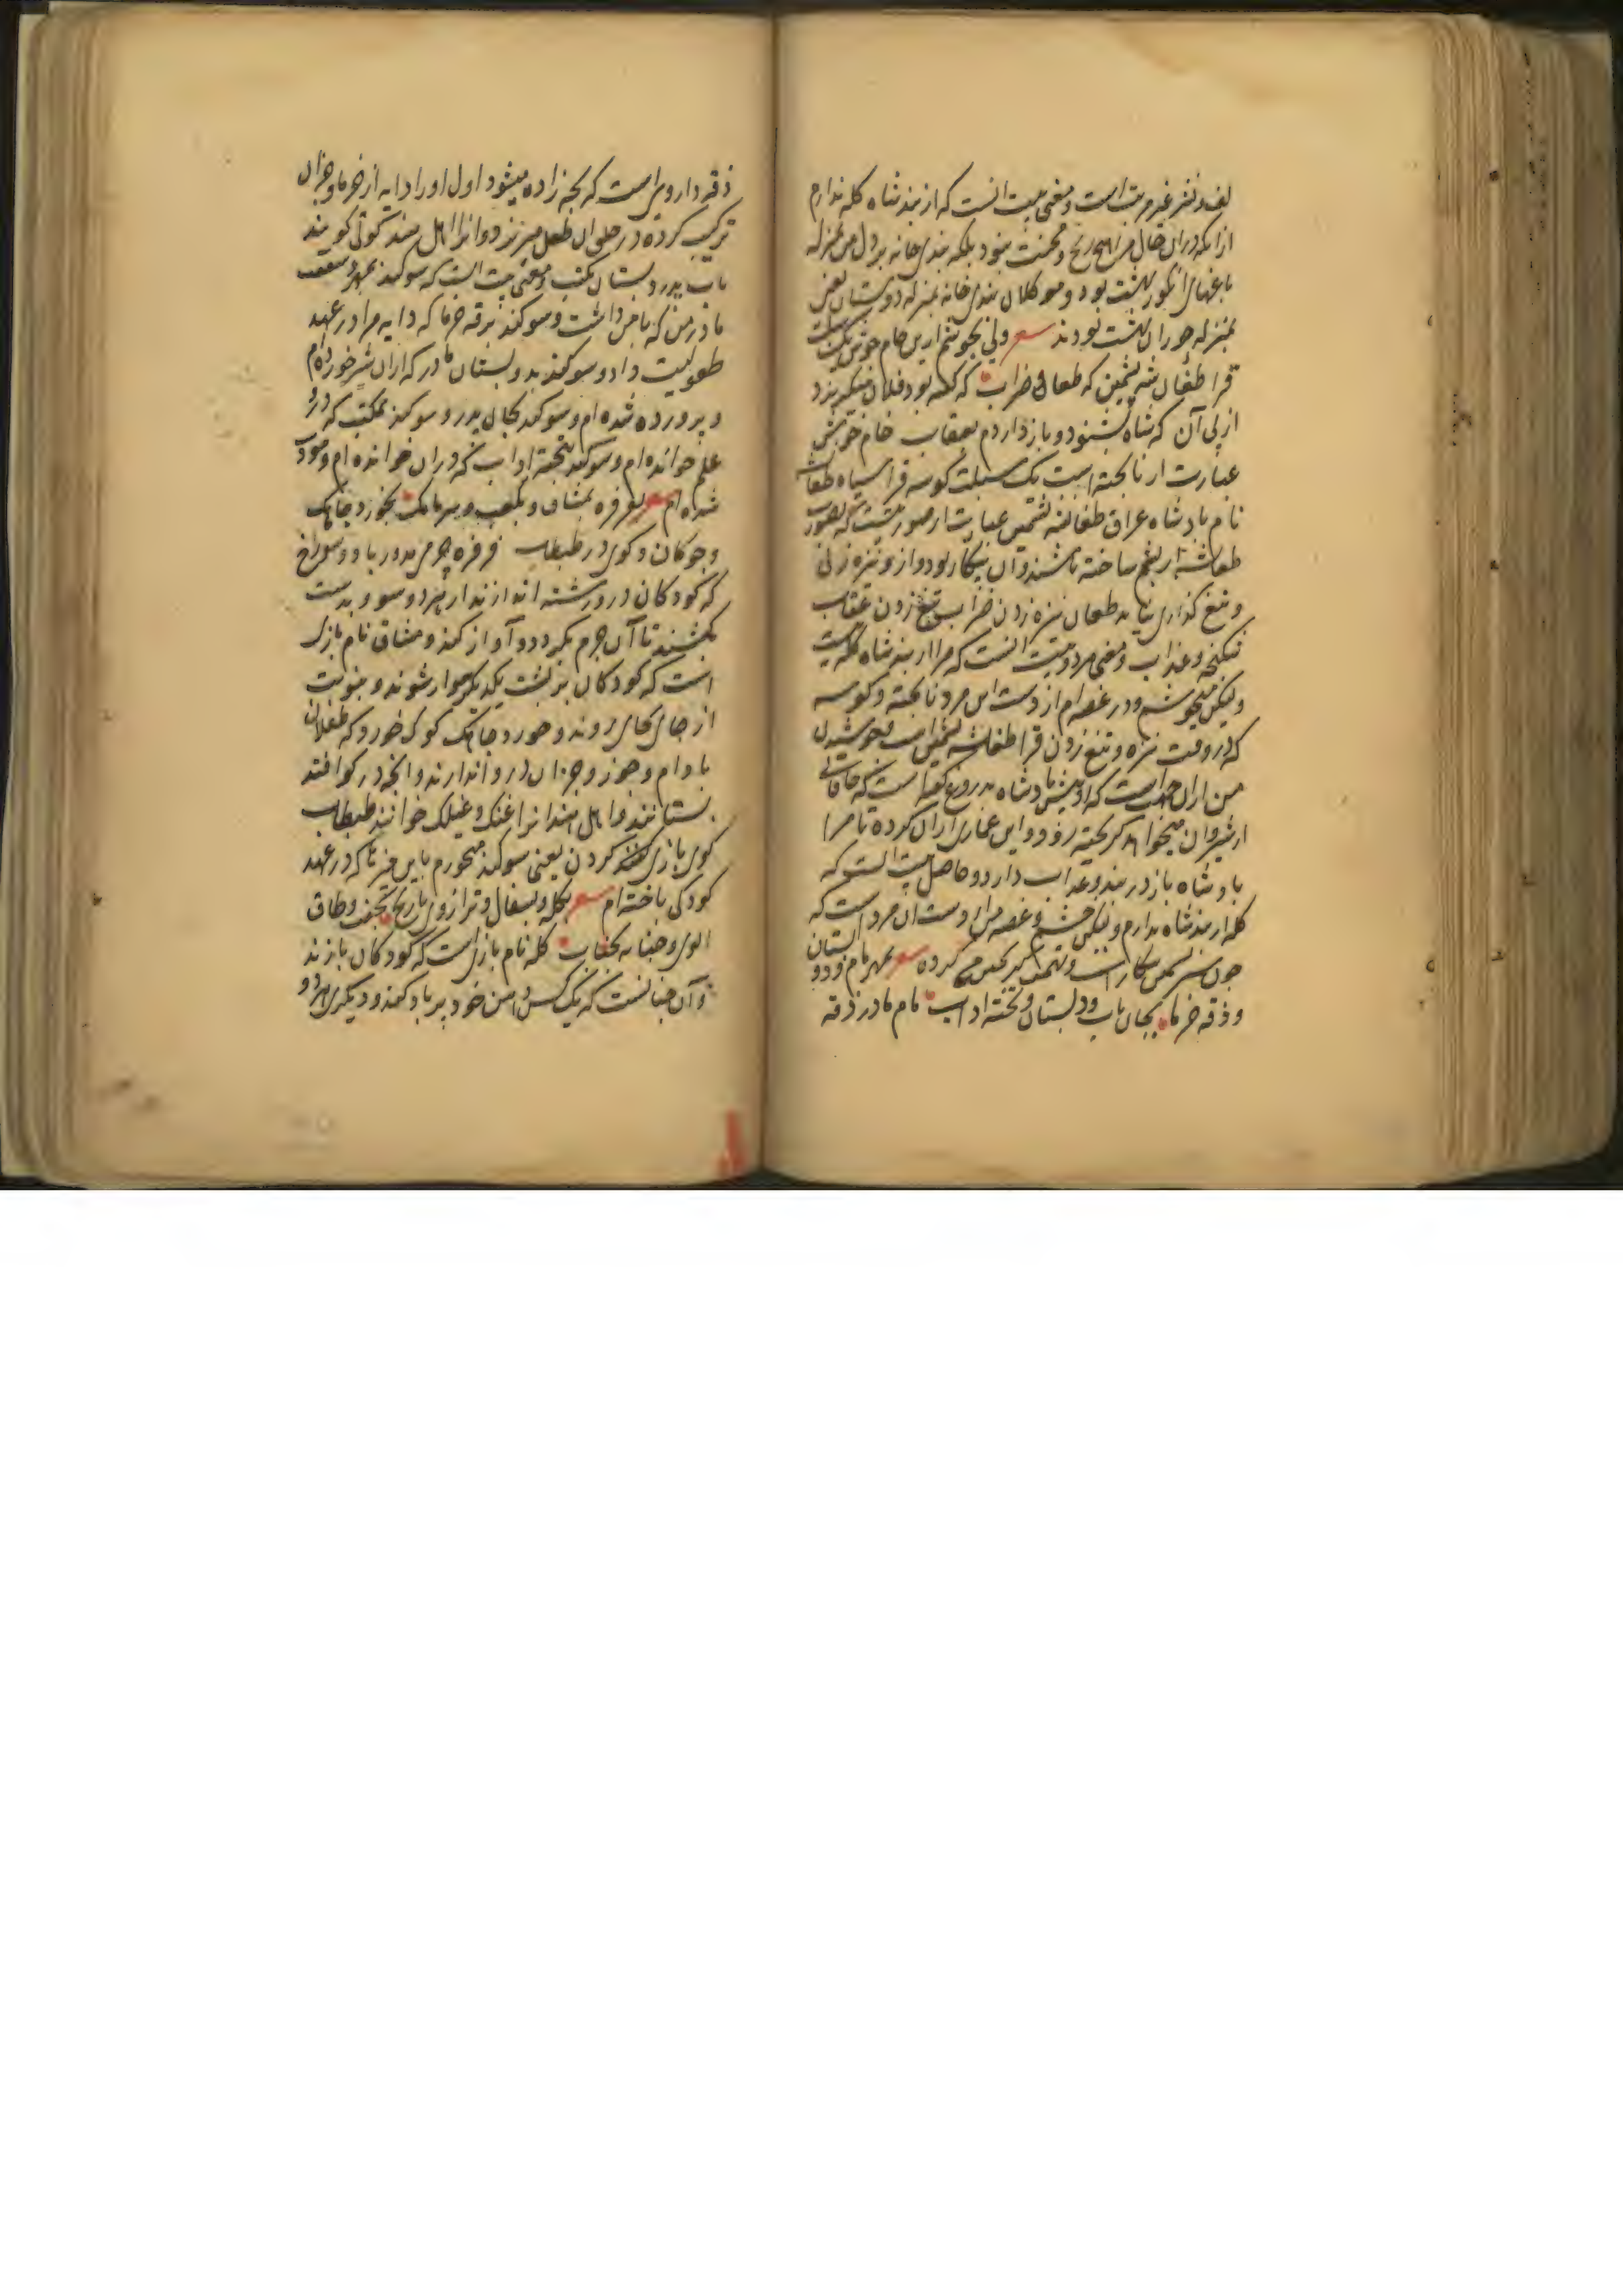 لف و نشر غیر مرتب است و معنی بیت آنست که از بند شاه گله ندارم
از آنکه در آن حال مرا هیچ رنج و محنت نبود بلکه بندی خانه بر دل من بمنزله
باغهای انگور بهشت بود و موکلان بندی خانه بمنزله دوستان یعنی
بمنزله حوران بهشت بودند شعر ولی بجوشم از این خام جوش
قرا طغان شه پشمین که طعان ضراب که
از پی آن که شاه بشنود و باز داردم بعقاب خام جوش
عبارت از ناپخته است تنک سبلت کوسه قرا سیاه طغانشه
نام پادشاه عراق طغانشه پشمین عبارت از صورتیست که بصورت
طغانشه از پشم ساخته باشند و آن بیکار بود و از و نیزه زنی
و تیغ گذاری نیاید طعان نیزه زدن ضراب تیغ زدن عقاب
شکنجه و عذاب و معنی هر دو بیت آنست که مرا از بند شاه گله نیست
ولیکن میجوشم و در غصه ام از دست این مرد ناپخته و کوسه
که در وقت نیزه و تیغ زدن قرا طغانشه پشمین است و جوشیدن
من از آن جهت است که او پیش پادشاه بدروغ گفته است که خاقانی
از شروان میخواهد گریخته رود و این غمازی از آن کرده تا مرا
پادشاه باز در بند و عذاب دارد و حاصل بیت آنست که
گله از بند شاه ندارم ولیکن خشم و غصه من از دست آن مرد است که
چون شیر پشمین بیکار است و تهمت کرده شعر بمهر مام و دو پستان
و ذقه خرما بجان باب و دبستان و تخته آداب مام مادر ذقه
ذقه دارویی است که بچه زاده میشود اول او را دایه از خرما و جز آن
ترکیب کرده در حلق آن طفل میریزند و آنرا اهل هند گوتی گویند
باب پدر دبستان مکتب و معنی بیت آنست که سوگند بمهر و شفقت
مادر من که با من داشت و سوگند بذقه خرما که دایه مرا در عهد
طفولیت داد و سوگند بدو پستان مادر که از آن شیر خورده ام
و پرورده شده ام و سوگند بجان پدر و سوگند بمکتب که درو
علم خوانده ام و سوگند بتخته آداب که در آن خوانده ام و مودب
شده ام شعر بفرفره بمشاق و بکعب و سرمامک بخورد و چاهک
و چوکان و کوی در طبطاب فرفره چرمی مدور با دو سوراخ
که کودکان درو رشته اندازند از هر دو سو و بدست
بکشند تا آن چرم بگردد و آواز کند و مشاق نام بازی
است که کودکان بر پشت یکدیگر سوار شوند و بنوبت
از جای بجای روند و خورد چاهک کوی خورد که طفلان
بادام و جوز و جز آن درو اندازند و آنچه در کو افتد
بستانند و اهل هند آنرا غنک و غیلک خوانند طبطاب
کوی بازی کردن یعنی سوگند میخورم باین چیزها که در عهد
کودکی باخته ام شعر بکله و بسفال و ترازوی نارنج بجفت و طاق
الوی و جنابه بکعاب کله نام بازی است که کودکان بازند
و آن چنانست که یک کس دامن خود پر باد کند و دیگری هر دو